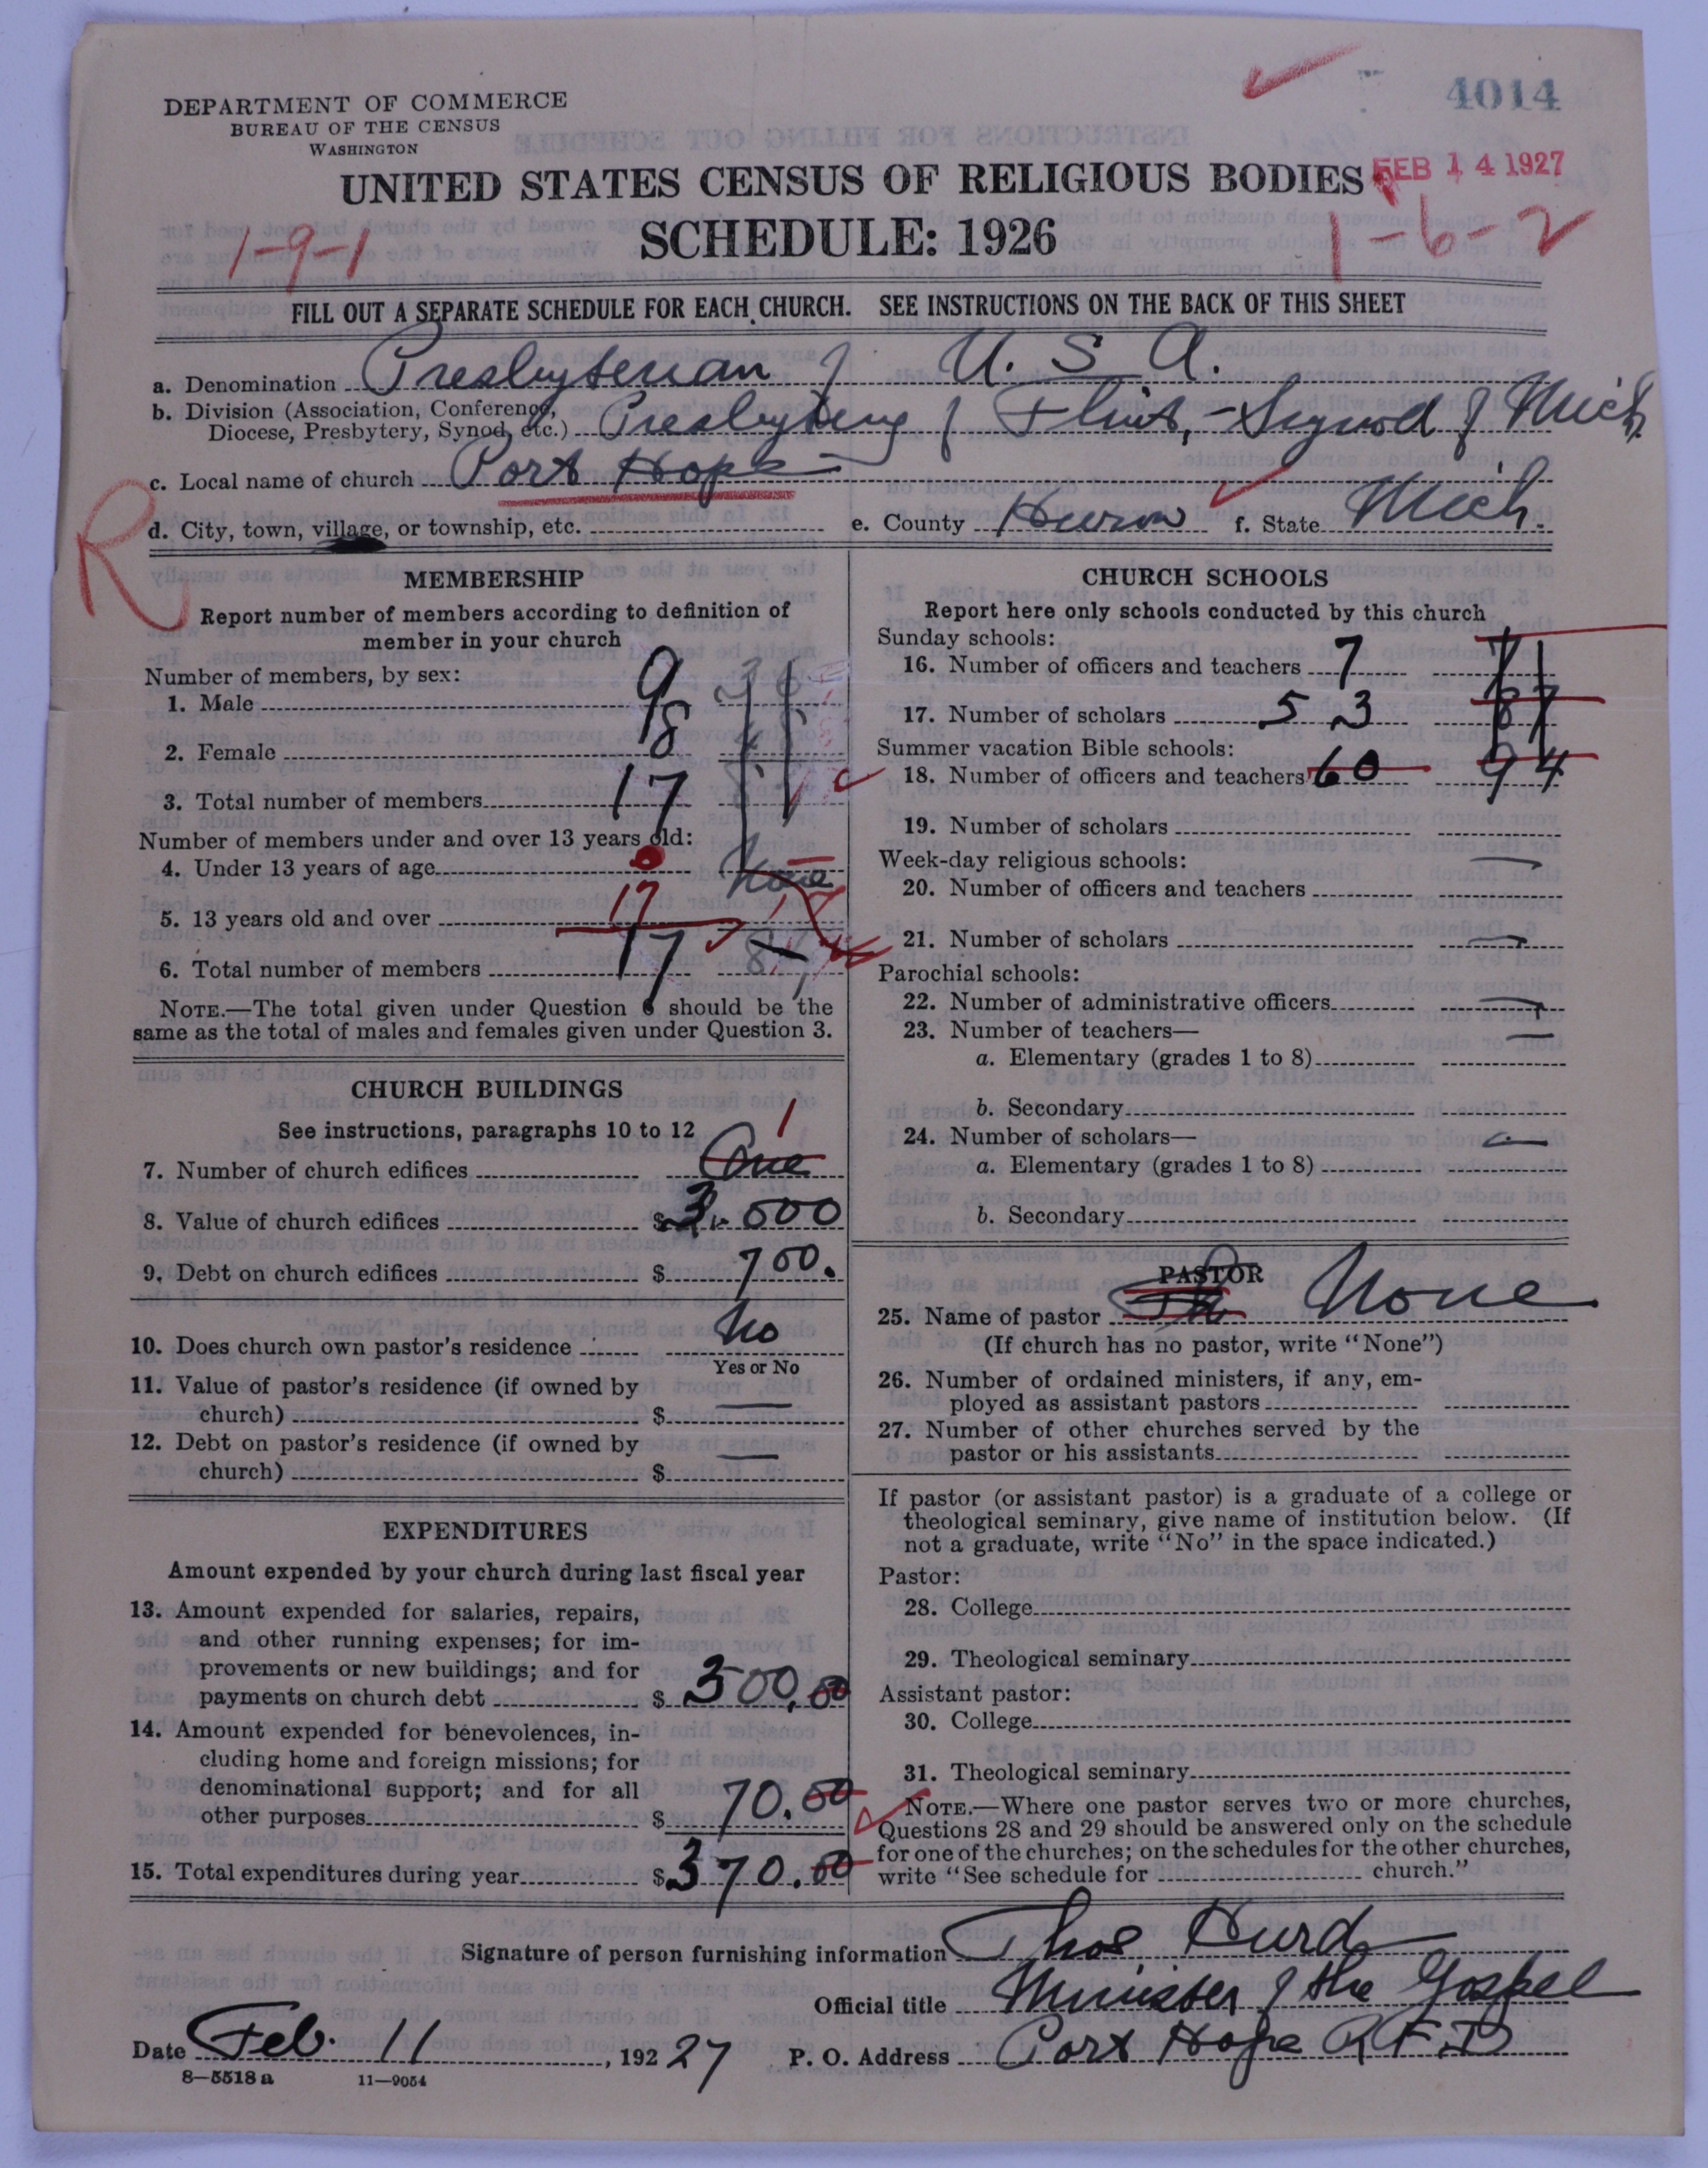 4014
DEPARTMENT OF COMMERCE
BUREAU OF THE CENSUS
WASHINGTON
UNITED STATES CENSUS OF RELIGIOUS BODIES
FEB 14 1927
SCHEDULE: 1926
1-9-1
1-6-2
FILL OUT A SEPARATE SCHEDULE FOR EACH CHURCH. SEE INSTRUCTIONS ON THE BACK OF THIS SHEET
a. Denomination Presbyterian of U. S. A.
b. Division (Association, Conference,
Diocese, Presbytery, Synod, etc.) Presbytery of Flint, - Synod of Mich.
c. Local name of church Port Hope
R
d. City, town, village, or township, etc. e. County Huron f. State Mich.
MEMBERSHIP
Report number of members according to definition of
member in your church
Number of members, by sex:
1. Male 9
2. Female 8
3. Total number of members 17
Number of members under and over 13 years old:
4. Under 13 years of age None
5. 13 years old and over 17
6. Total number of members 17
NOTE.—The total given under Question 6 should be the
same as the total of males and females given under Question 3.
CHURCH BUILDINGS
See instructions, paragraphs 10 to 12
7. Number of church edifices One 1
8. Value of church edifices $ 3,000
9. Debt on church edifices $ 700.
10. Does church own pastor's residence No
Yes or No
11. Value of pastor's residence (if owned by
church) $ —
12. Debt on pastor's residence (if owned by
church) $ —
EXPENDITURES
Amount expended by your church during last fiscal year
13. Amount expended for salaries, repairs,
and other running expenses; for im-
provements or new buildings; and for
payments on church debt $ 300.00
14. Amount expended for benevolences, in-
cluding home and foreign missions; for
denominational support; and for all
other purposes $ 70.00
15. Total expenditures during year $ 370.00
CHURCH SCHOOLS
Report here only schools conducted by this church
Sunday schools:
16. Number of officers and teachers 7 7
17. Number of scholars 53 87
Summer vacation Bible schools:
18. Number of officers and teachers 60 94
19. Number of scholars
Week-day religious schools: —
20. Number of officers and teachers
21. Number of scholars —
Parochial schools:
22. Number of administrative officers —
23. Number of teachers— —
a. Elementary (grades 1 to 8)
b. Secondary
24. Number of scholars— —
a. Elementary (grades 1 to 8)
b. Secondary
PASTOR
25. Name of pastor None
(If church has no pastor, write "None")
26. Number of ordained ministers, if any, em-
ployed as assistant pastors
27. Number of other churches served by the
pastor or his assistants
If pastor (or assistant pastor) is a graduate of a college or
theological seminary, give name of institution below. (If
not a graduate, write "No" in the space indicated.)
Pastor:
28. College
29. Theological seminary
Assistant pastor:
30. College
31. Theological seminary
NOTE.—Where one pastor serves two or more churches,
Questions 28 and 29 should be answered only on the schedule
for one of the churches; on the schedules for the other churches,
write "See schedule for church."
Signature of person furnishing information Thos. Hurd
Official title Minister of the Gospel
Date Feb. 11, 192 27 P. O. Address Port Hope R.F.D
8—5518 a 11—9054